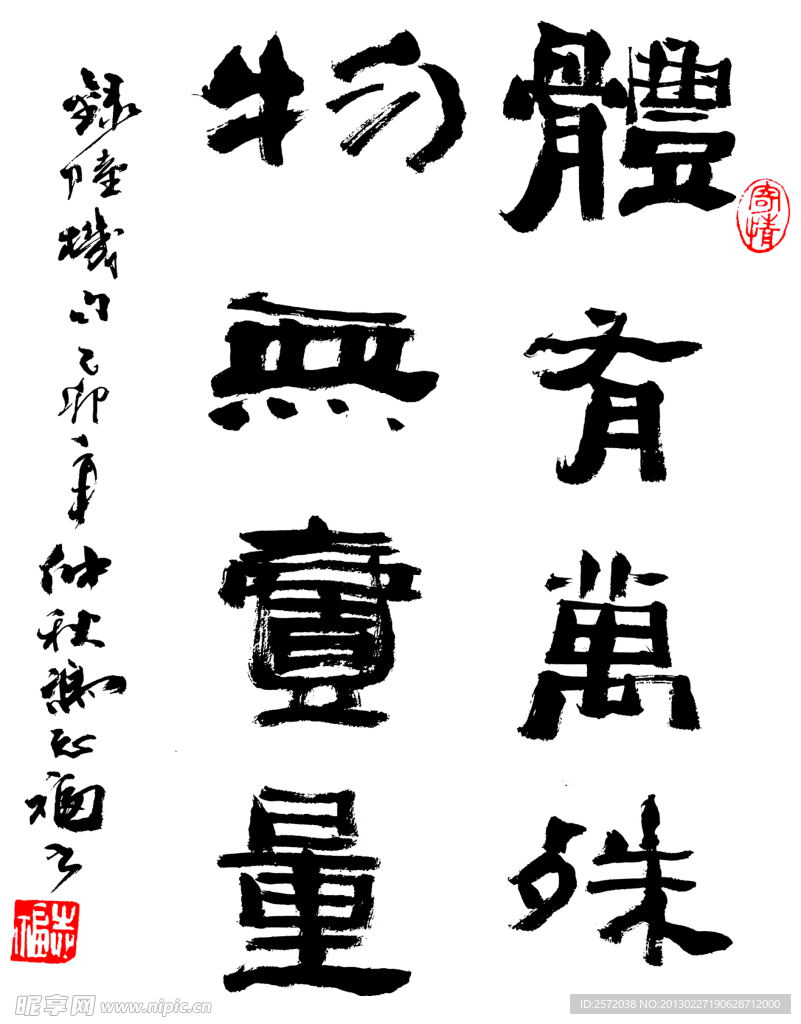 寄情
體有萬殊
物無壹量
錄陸機句己卯年仲秋謝志福书
志福
昵享网 www.nipic.cn
ID:2572038 NO:20130227190628712000